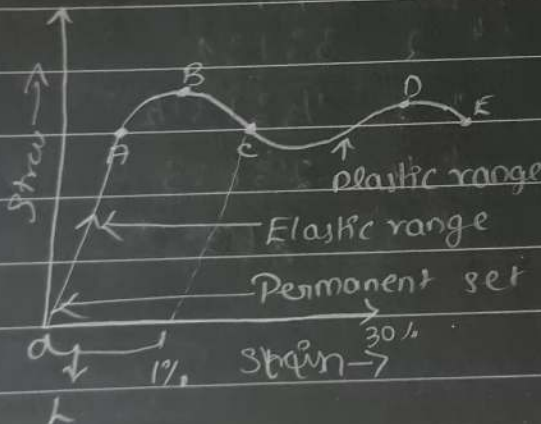 B
D
E
A
C
Stress→
plastic range
Elastic range
Permanent set
O
30%
1%
Strain→